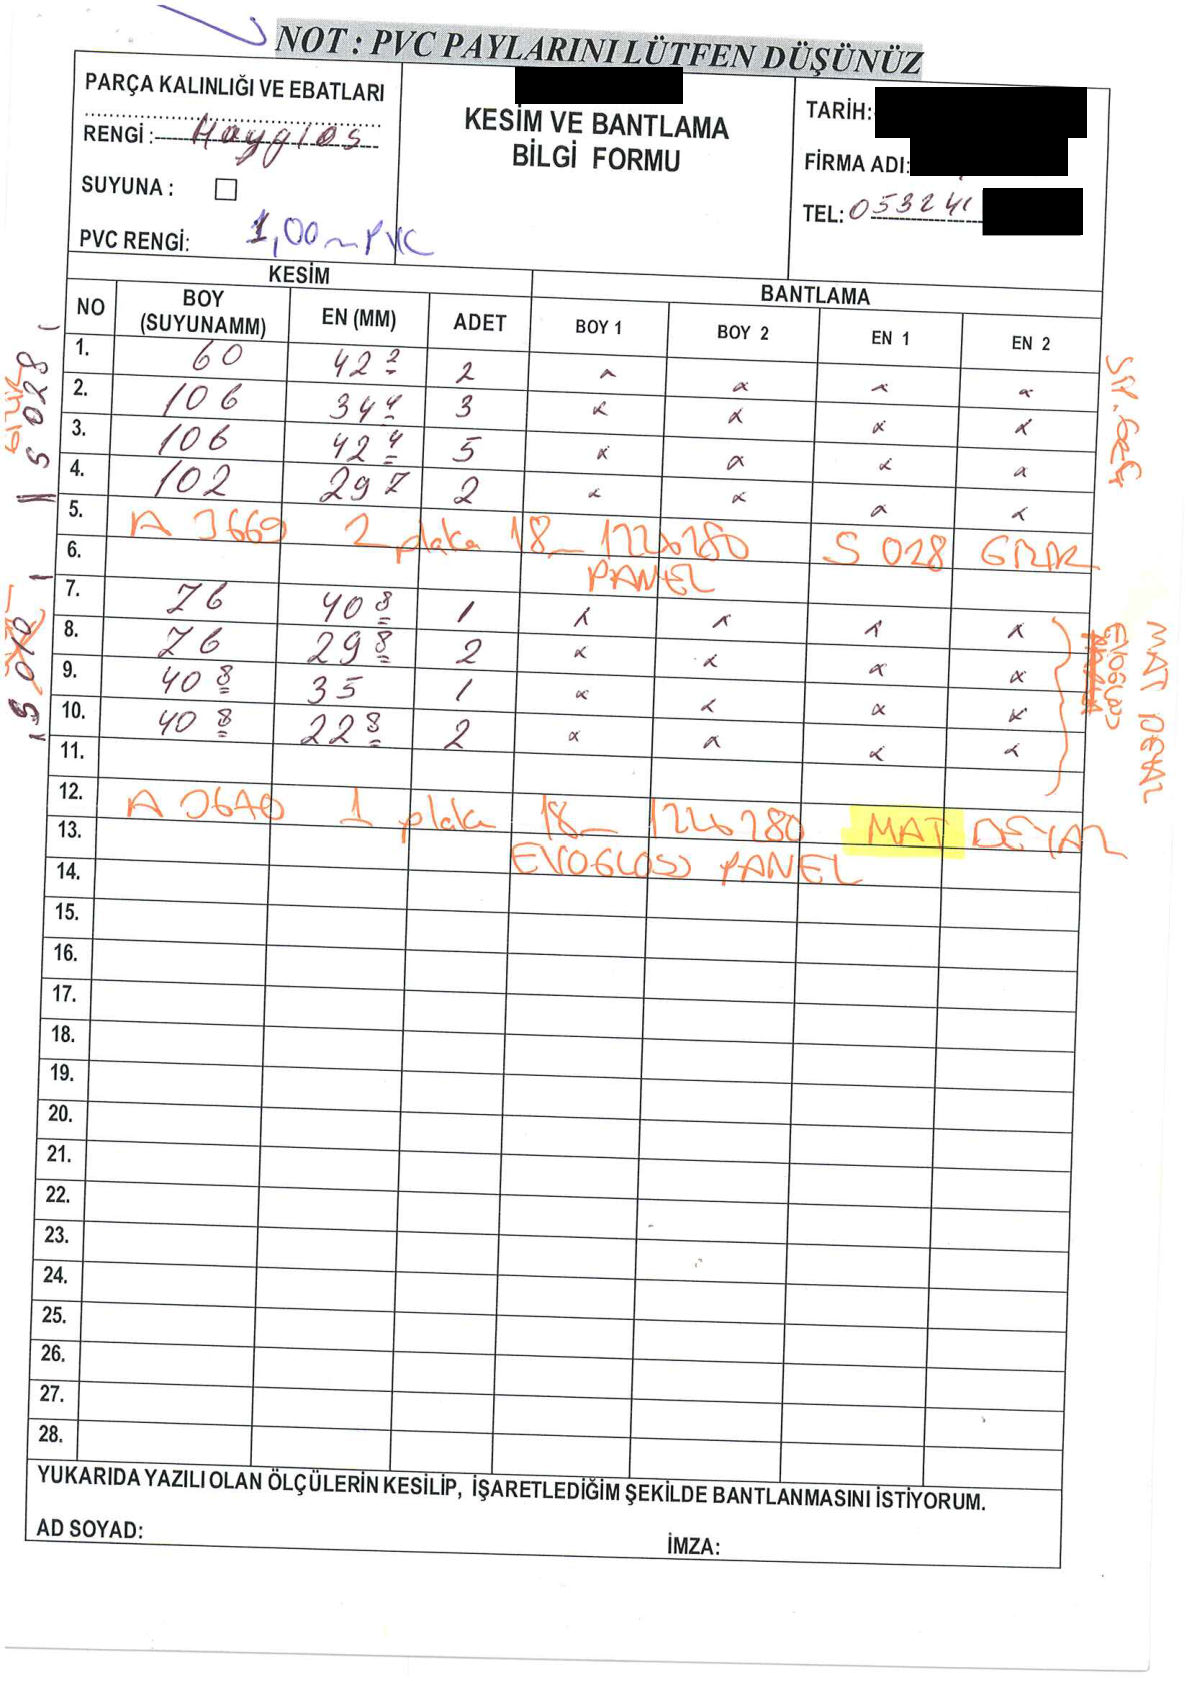 NOT : PVC PAYLARINI LÜTFEN DÜŞÜNÜZ
PARÇA KALINLIĞI VE EBATLARI
RENGİ : Hayglos
SUYUNA : ☐
PVC RENGİ: 1,00 PVC
KESİM VE BANTLAMA
BİLGİ FORMU
TARİH:
FİRMA ADI:
TEL: 053241
KESİM BANTLAMA
NO BOY (SUYUNAMM) EN (MM) ADET BOY 1 BOY 2 EN 1 EN 2
1. 60 42 2 2 x x x x
2. 106 34 4 3 x x x x
3. 106 42 4 5 x x x x
4. 102 29 7 2 x x x x
5. A 3669 2 plaka 18 122x280 S 028 GIRIK
6. PANEL
7. 76 40 8 1 x x x x
8. 76 29 8 2 x x x x
9. 40 8 35 1 x x x x
10. 40 8 22 8 2 x x x x
11.
12. A 3640 1 plaka 18 122x280 MAT DEYAZ
13. EVOGLOSS PANEL
14.
15.
16.
17.
18.
19.
20.
21.
22.
23.
24.
25.
26.
27.
28.
YUKARIDA YAZILI OLAN ÖLÇÜLERİN KESİLİP, İŞARETLEDİĞİM ŞEKİLDE BANTLANMASINI İSTİYORUM.
AD SOYAD: İMZA:
S 028
S 010
MAT DEYAZ
EVOGLOSS